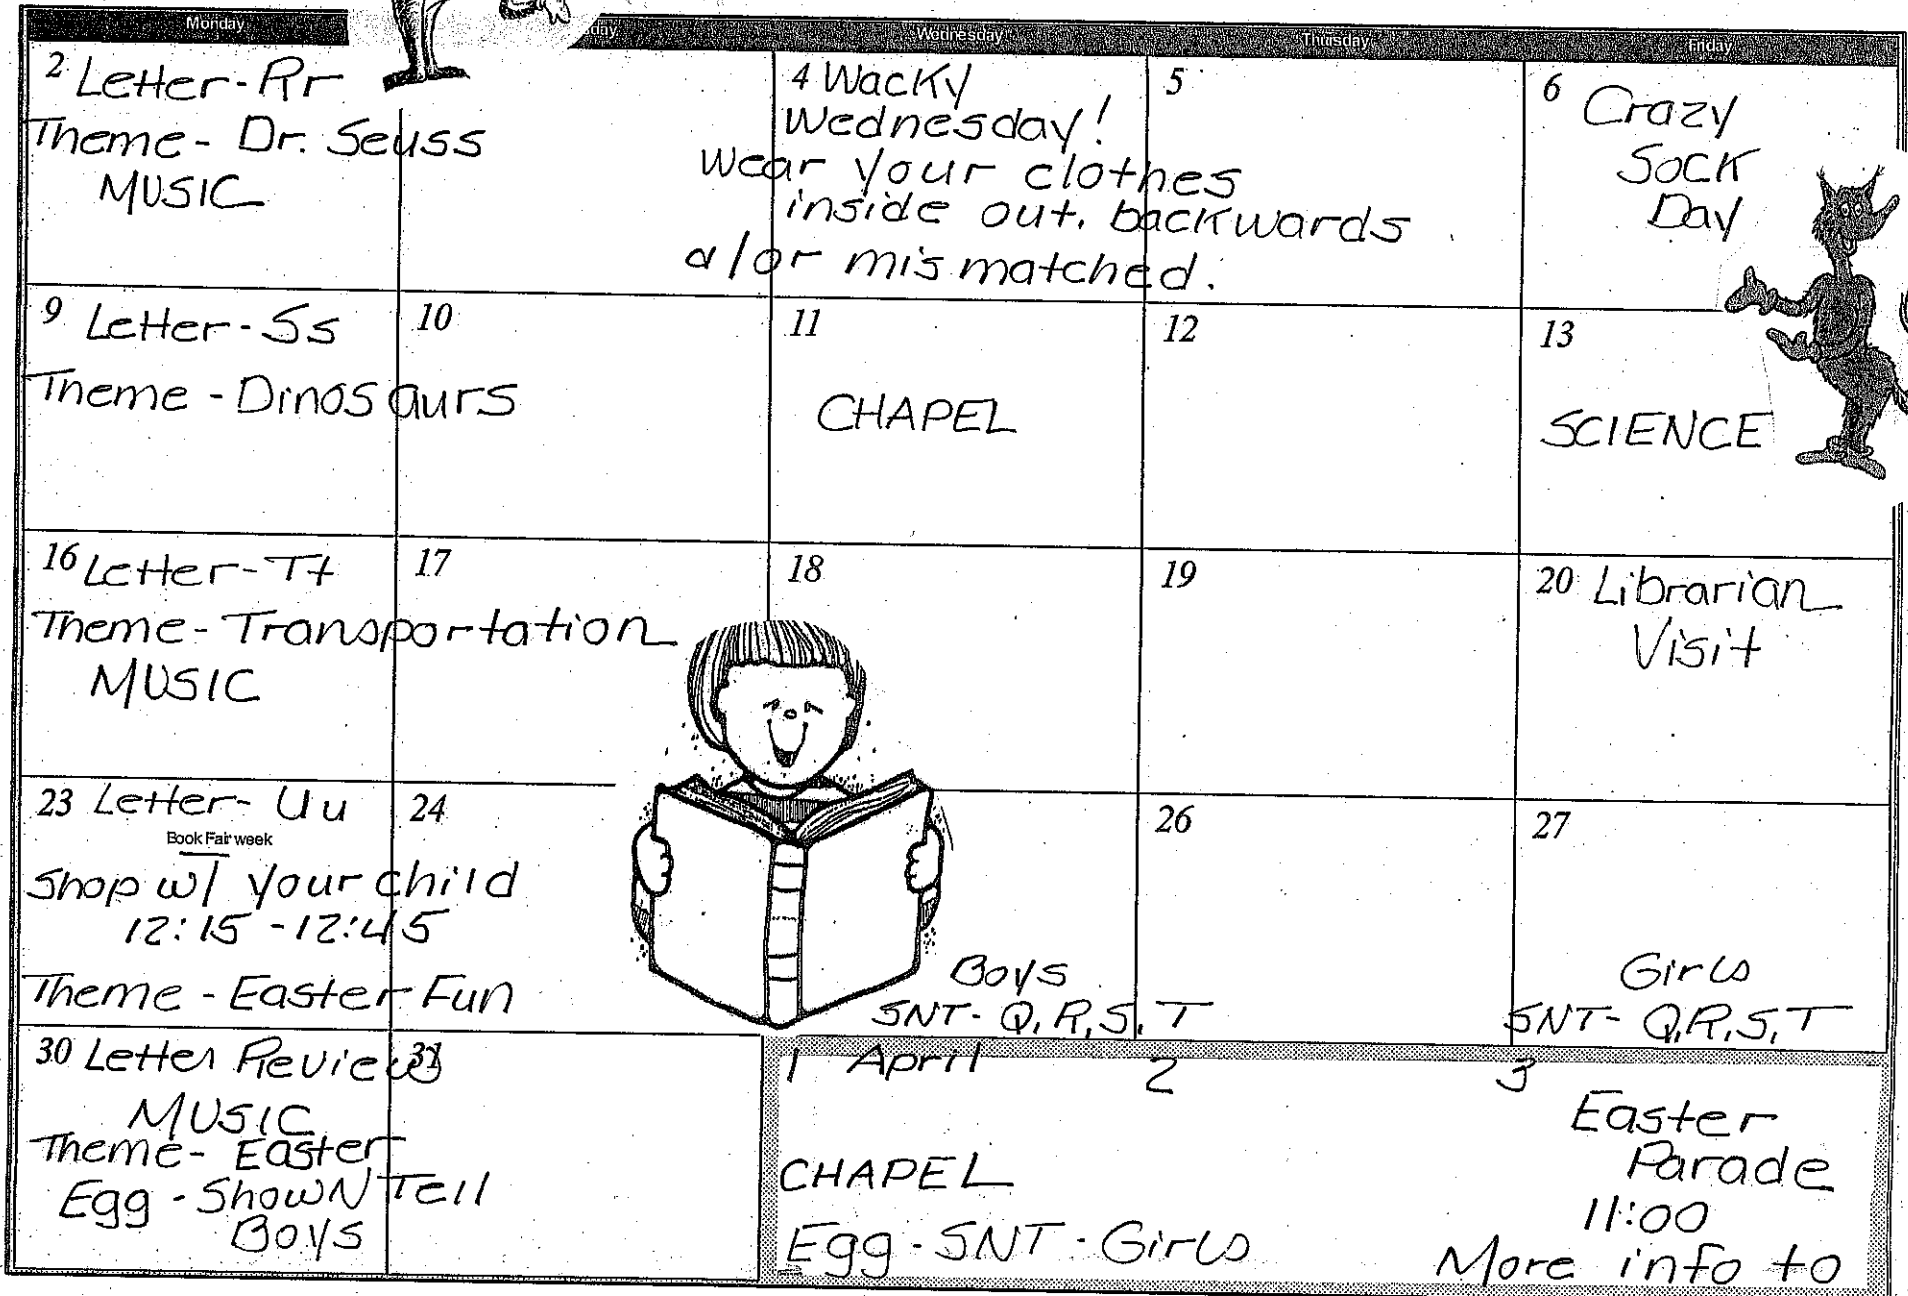 Monday
day
Wednesday
Thursday
Friday
2 Letter-Rr
Theme - Dr. Seuss
MUSIC
4 Wacky
Wednesday!
wear your clothes
inside out, backwards
a/or mismatched.
5
6 Crazy
Sock
Day
9 Letter-Ss
Theme - Dinosaurs
10
11
CHAPEL
12
13
SCIENCE
16 Letter-Tt
Theme - Transportation
MUSIC
17
18
19
20 Librarian
Visit
23 Letter- Uu
Book Fair week
Shop w/ your child
12:15 - 12:45
Theme - Easter Fun
24
Boys
SNT- Q,R,S,T
26
27
Girls
SNT- Q,R,S,T
30 Letter Review
MUSIC
Theme- Easter
Egg - ShowNTell
Boys
31
1 April
CHAPEL
Egg - SNT - Girls
2
3
Easter
Parade
11:00
More info to